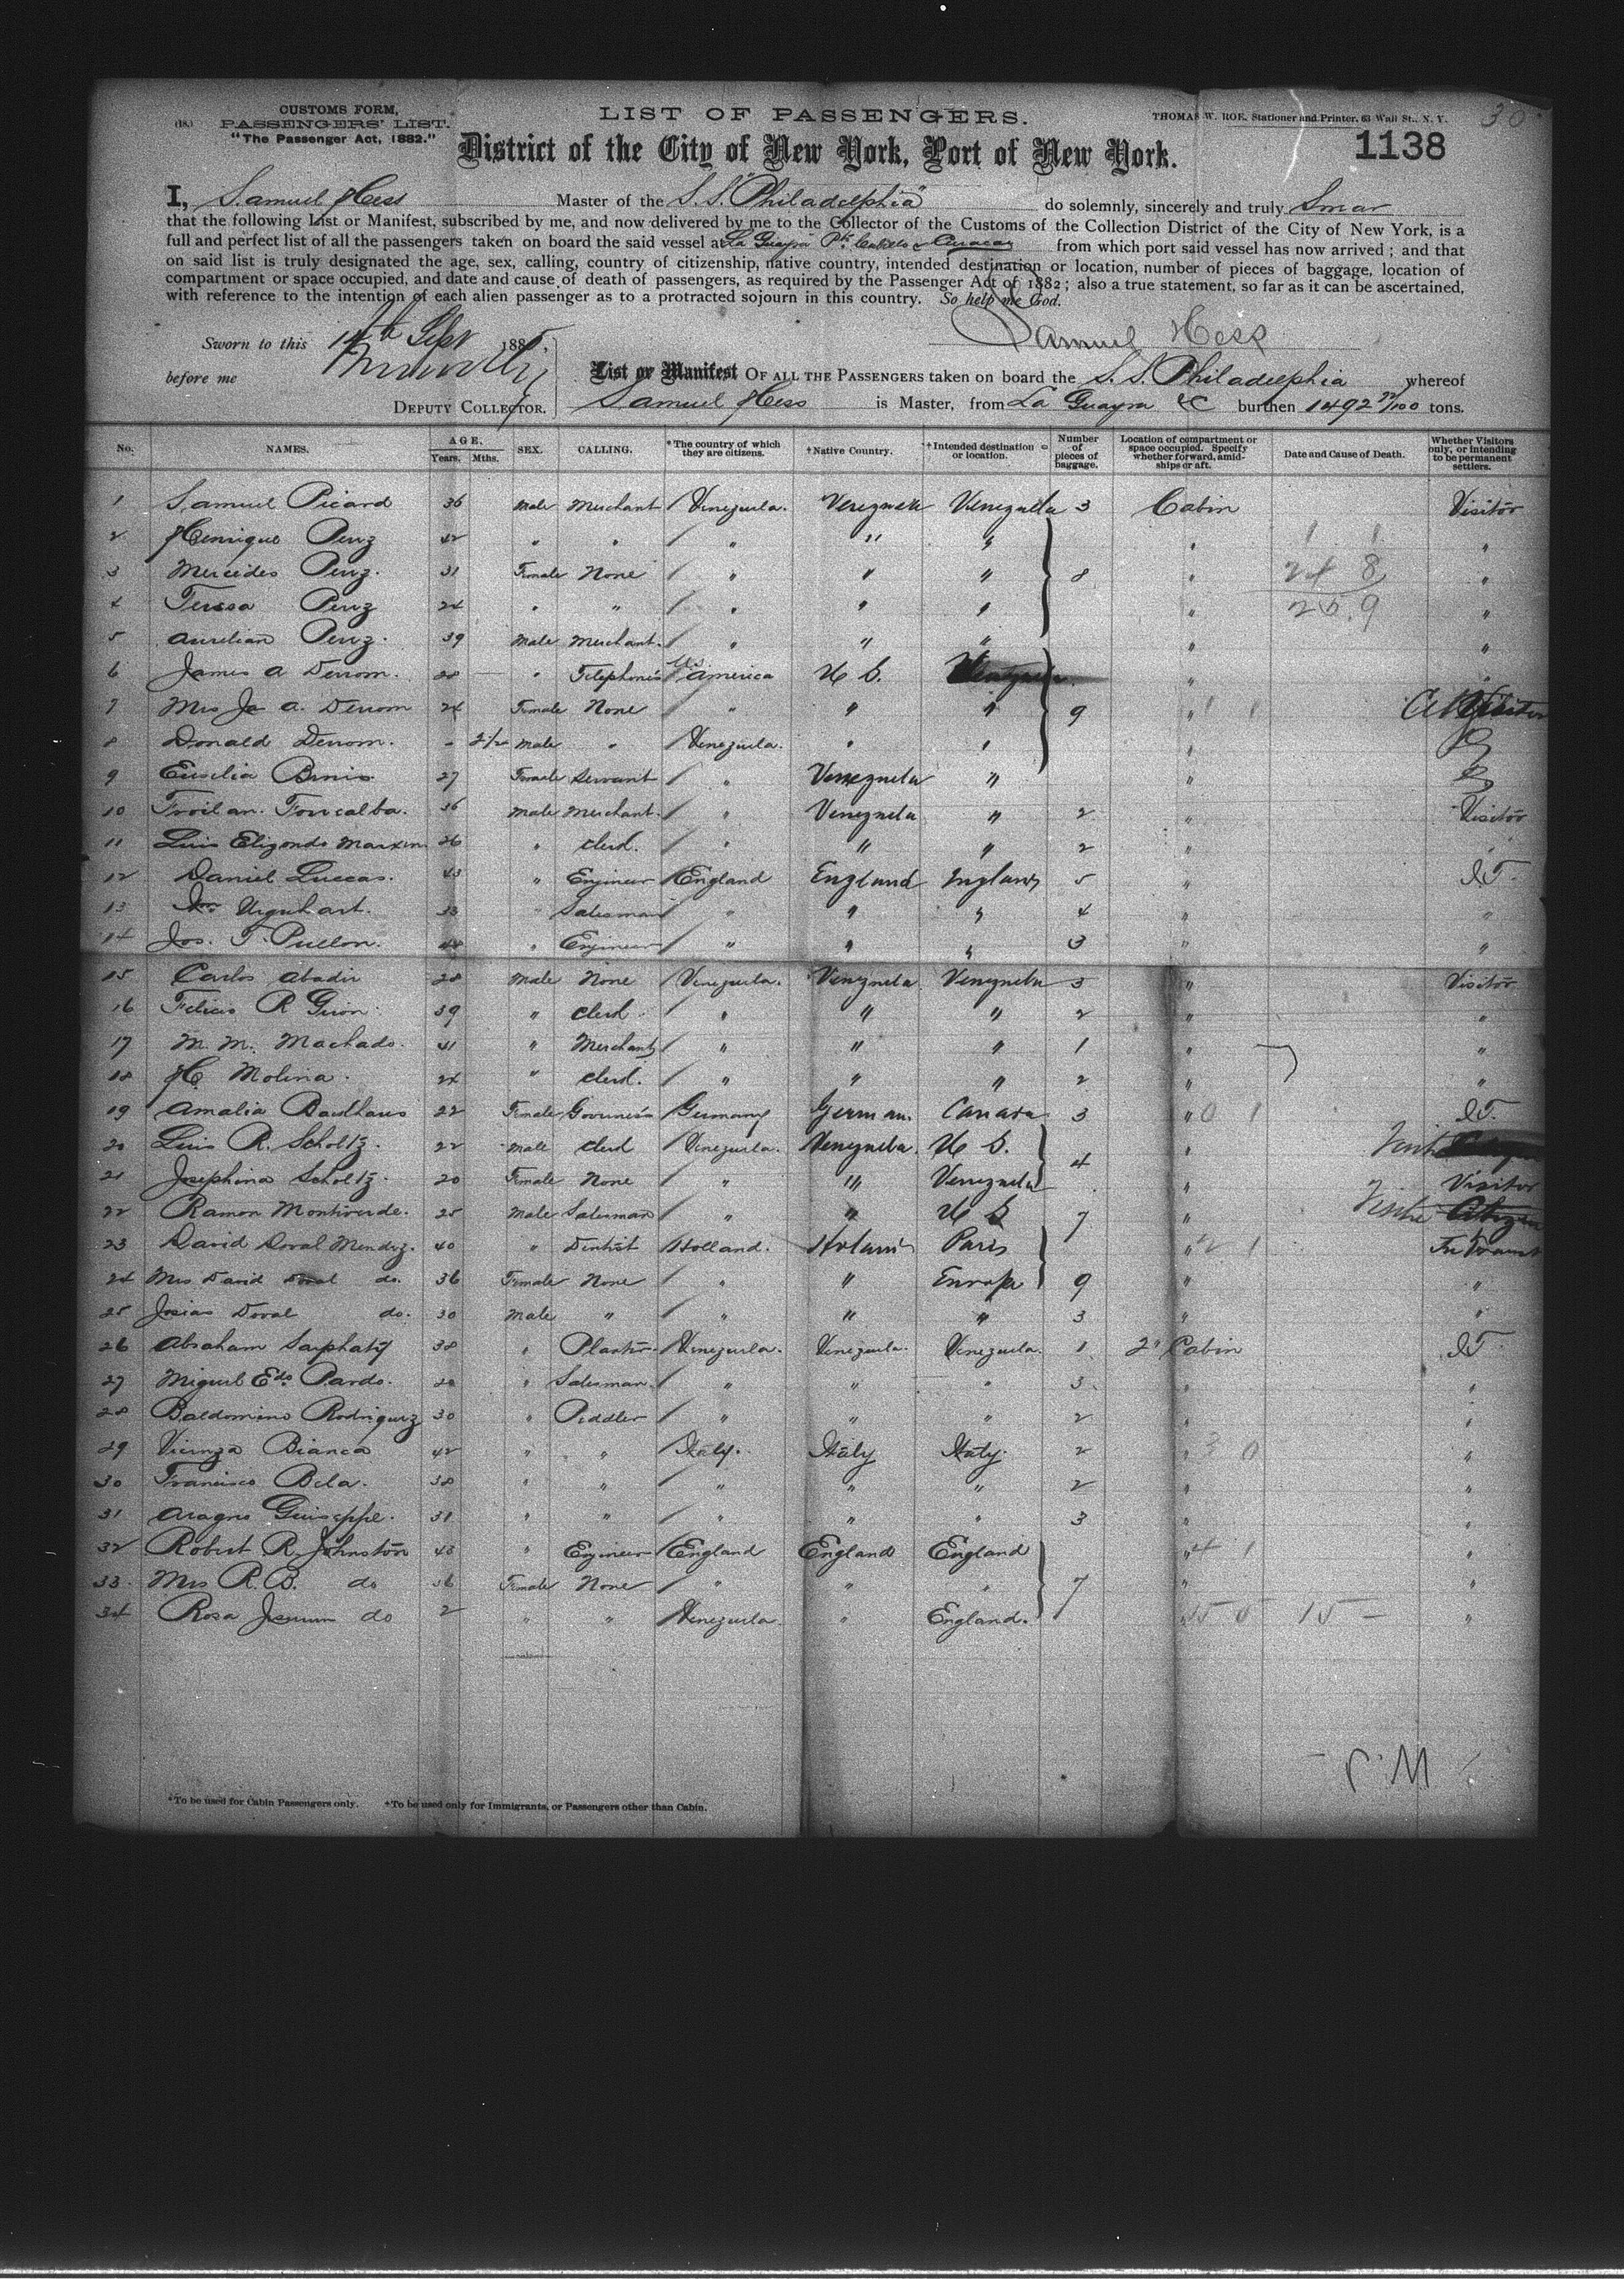 30
CUSTOMS FORM,
(18.) PASSENGERS' LIST.
"The Passenger Act, 1882."
LIST OF PASSENGERS.
THOMAS W. ROE, Stationer and Printer, 63 Wall St., N. Y.
District of the City of New York, Port of New York.
1138
I, Samuel Hess Master of the S.S. "Philadelphia" do solemnly, sincerely and truly Swear
that the following List or Manifest, subscribed by me, and now delivered by me to the Collector of the Customs of the Collection District of the City of New York, is a
full and perfect list of all the passengers taken on board the said vessel at La Guayra Pto Cabello & Curacao from which port said vessel has now arrived; and that
on said list is truly designated the age, sex, calling, country of citizenship, native country, intended destination or location, number of pieces of baggage, location of
compartment or space occupied, and date and cause of death of passengers, as required by the Passenger Act of 1882; also a true statement, so far as it can be ascertained,
with reference to the intention of each alien passenger as to a protracted sojourn in this country. So help me God.
Samuel Hess
Sworn to this 14th Sept 188
before me
DEPUTY COLLECTOR.
List or Manifest OF ALL THE PASSENGERS taken on board the S.S. Philadelphia whereof
Samuel Hess is Master, from La Guayra &C burthen 1492 72/100 tons.
No. NAMES. AGE. Years. Mths. SEX. CALLING. *The country of which they are citizens. †Native Country. †Intended destination or location. Number of pieces of baggage. Location of compartment or space occupied. Specify whether forward, amidships or aft. Date and Cause of Death. Whether Visitors only, or intending to be permanent settlers.
1 Samuel Picard 36 Male Merchant Venezuela. Venezuela Venezuela 3 Cabin Visitor
2 Henrique Perez 42 " " " " " " "
3 Mercedes Perez. 31 Female None " " " 8 " "
4 Teresa Perez 24 " " " " " " "
5 Aurelian Perez. 39 Male Merchant. " " " " "
6 James A Derrom. 28 " US America U S. "
7 Mrs Ja A. Derrom 24 Female None " " " 9 "
8 Donald Derrom. - 2½ Male " Venezuela. " "
9 Eusilia 27 Female Servant " Venezuela " "
10 Froilan 36 Male Merchant. " Venezuela " 2 " Visitor
11 Luis Elizondo 26 " Clerk. " " " 2 " "
12 Daniel Luccas. 43 " Engineer England England England 5 " I.T.
13 Urquhart. 33 " Salesman " " " 4 " "
14 Jos. T. Pullon. 44 " Engineer " " " 3 " "
15 Carlos Abadir 28 Male None Venezuela. Venezuela Venezuela 3 " Visitor
16 R 39 " Clerk " " " 2 " "
17 M. M. Machado. 41 " Merchant " " " 1 " "
18 H Molina. 24 " Clerk. " " " 2 " "
19 Amalia 22 Female Governess Germany German. Canada 3 " I.T.
20 Luis R. Scholtz. 22 Male Clerk Venezuela. Venezuela. U S. "
21 Josephina Scholtz. 20 Female None " " Venezuela 4 " Visitor
22 Ramon Montiverde. 25 Male Salesman " " U S 7 "
23 David Doval Mendez. 40 " Dentist Holland. Paris " In Transit
24 Mrs David Doval do. 36 Female None " " Europe 9 " "
25 Josias Doval do. 30 Male " " " " 3 " "
26 Abraham Sarphaty 38 " Planter. Venezuela. Venezuela. Venezuela. 1 2d Cabin I.T.
27 Miguel Edo Pardo. " Salesman. " " " 3. " "
28 Baldomino Rodriguez 30 " Peddler " " " 2 " "
29 Bianca 42 " " Italy. Italy Italy. 2 " "
30 Francisco Bela. 38 " " " " " 2 " "
31 Aragno Guiseppe. 31 " " " " " 3 " "
32 Robert R. Johnston 43 " Engineer England England England " "
33. Mrs R. B. do 36 Female None " " " 7 " "
34 Rosa do 2 " " Venezuela. " England. " "
*To be used for Cabin Passengers only. †To be used only for Immigrants, or Passengers other than Cabin.